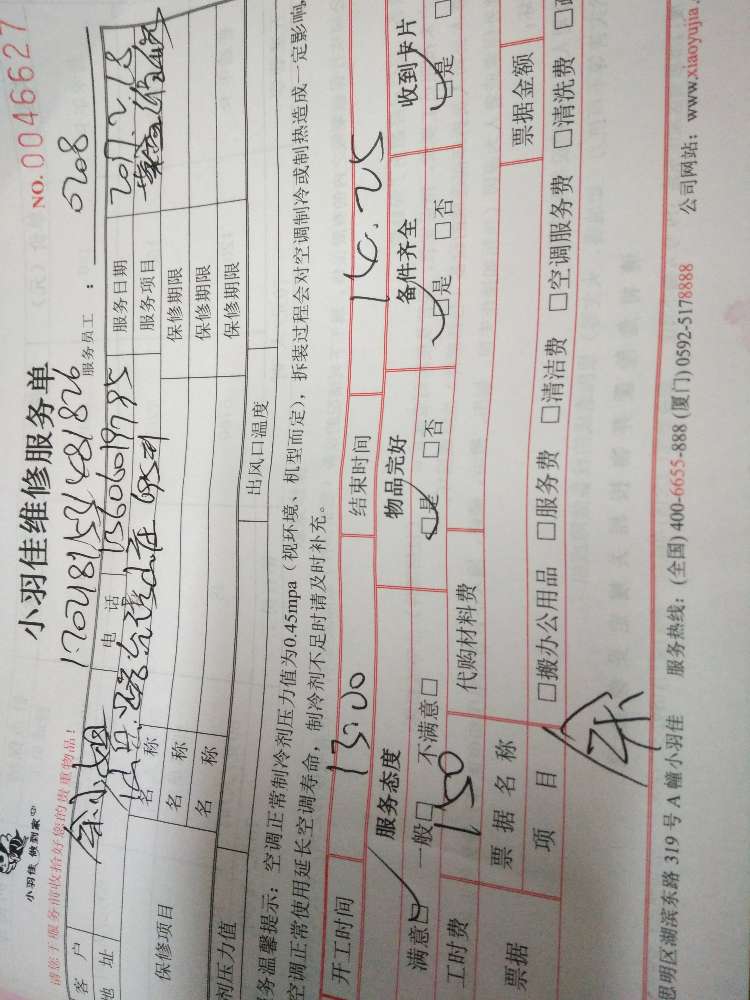 小羽佳 做到家
小羽佳维修服务单
NO.0046627
请您于服务前收拾好您的贵重物品!
1702181531481826
服务员工: 0208
客户 余小姐 电话 15606019785 服务日期 2017.2.18
地址 服务项目
保修项目 名称 保修期限
名称 保修期限
名称 保修期限
剂压力值 出风口温度
务温馨提示:空调正常制冷剂压力值为0.45mpa(视环境、机型而定),拆装过程会对空调制冷或制热造成一定影响,
空调正常使用延长空调寿命,制冷剂不足时请及时补充。
开工时间 13:00 结束时间 14:25
服务态度 物品完好 备件齐全 收到卡片
满意□ 一般□ 不满意□ □是 □否 □是 □否 □是 □
工时费 150 代购材料费
票据 票据名称 票据金额
项目 □搬办公用品 □服务费 □清洁费 □空调服务费 □清洗费 □
余
思明区湖滨东路 319 号 A 幢小羽佳 服务热线:(全国) 400-6655-888 (厦门) 0592-5178888 公司网站:www.xiaoyujia.